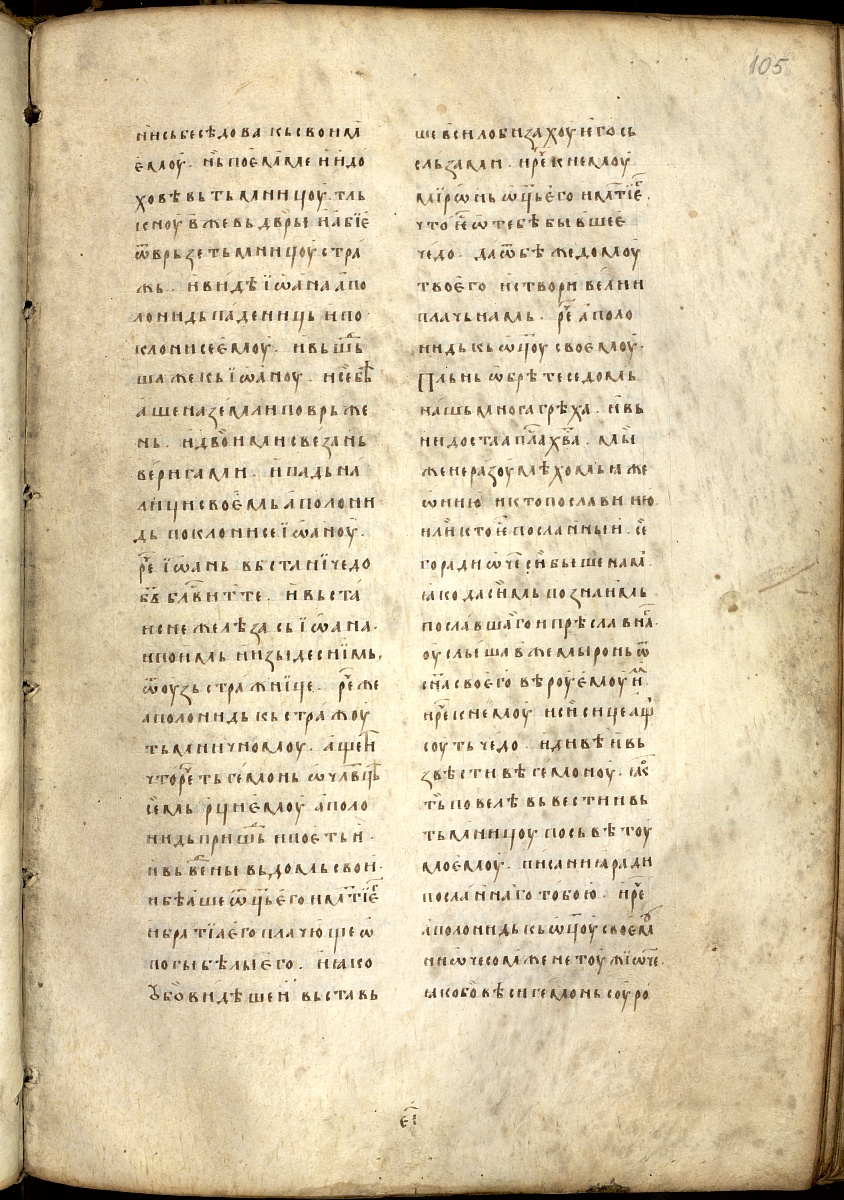 105
нись бесѣдова кь своимꙋ
ѥмоу · нь поемьме и идо
ховѣ вь тьмницоу · тль
кноувже вь двьри и абїе
ѿврьзе тьмницоу стра
жь · и видѣ їѡана апо
лонидь паде ниць и по
клони се ѥмоу · и вьшⷣь
ша же кь їѡаноу · и себѣ
аше на земли поврьже
нь · и двоими свезань
веригами · и падь на
лици своемь аполони
дь поклони се їѡаноу ·
рⷱе їѡань вьстани чедо
бь блⷭвит те · и вьста
и сне желѣза сь їѡана ·
и поимь и изыде с нимь,
ѿ оузь стражнїце · рⷱе же
аполонидь кь стражоу
тьмничномоу · аще н
что рⷱеть гемонь ѡ члвцѣ
семь рци ѥмоу аполо
нидь пришⷣь и поеть и ·
и вьведены вь домь свои ·
и бѣаше ѿць ѥго и мти ѥⷢ
и братїа ѥго плачюще ѡ
погыбѣлы ѥго · и ꙗко
ꙋбо видѣше и вьставь
ше вси лобизахоу и го сь
сльзами · и рⷱе к немоу
мїрѡнь ѿць ѥго и мти ѥⷢ ·
что ѥ ѡ тебѣ бывшее
чедо · да ѿбѣже домоу
твоего и створи вели
плачь намь · рⷱе аполо
нидь кь ѿцоу своемоу ·
Пльнь ѡбрѣте се домь
нашь многа грѣха · и вь
и недостла апⷭла хва · мы
же не разоумѣхомь ꙗже
ѡ нию и кто послави ню
или кто ѥ посланныи · се
го ради ѡче сн быше намꙿ
ꙗко да симь познаимь
пославшаго и прѣславна ·
оуслышав же мыронь ѿ
сна своего вѣроуе моу и
и рⷱе к немоу и си сице аще
соуть чедо · иди вѣ и вь
звѣстивѣ гемоноу · ꙗкⷪ
ть повелѣ вьвести и вь
тьмницоу по сьвѣтоу
моемоу · писаниꙗ ради
посланнаго тобою · и рⷱе
аполонидь кь ѿцоу своемꙋ
ни ѡ чесом же не тоужи ѡче ·
ꙗко бо вѣси гемонь соуро
еі